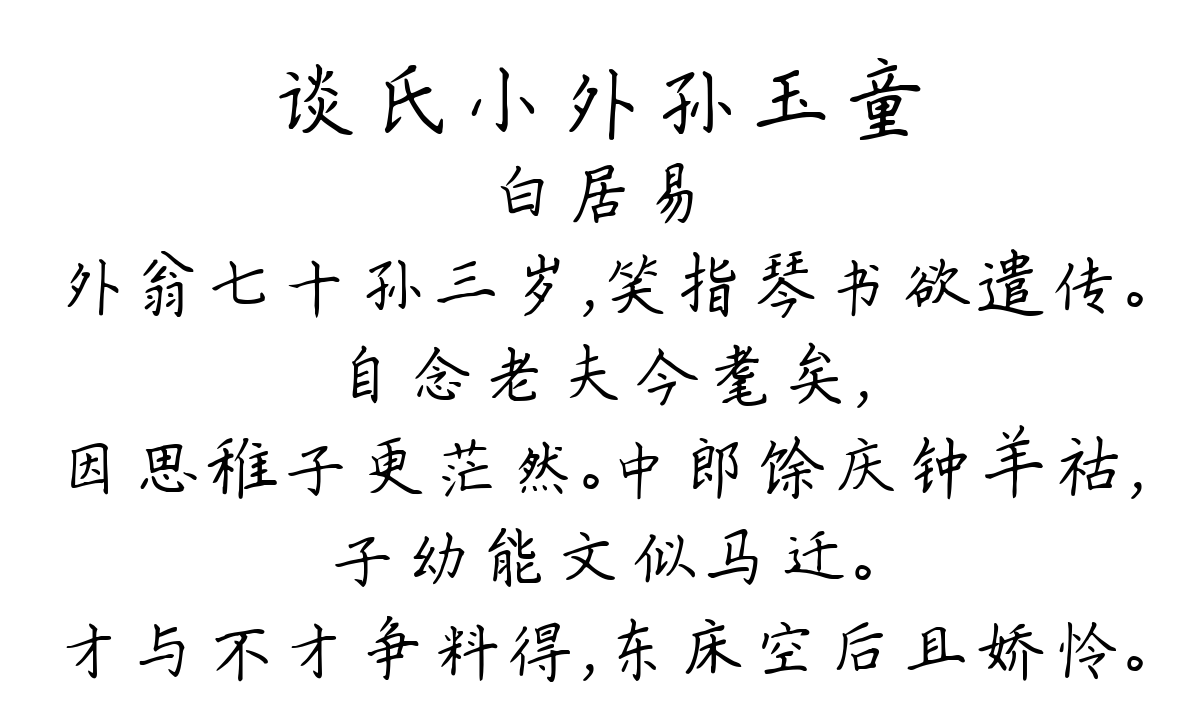 谈氏小外孙玉童
白居易
外翁七十孙三岁,笑指琴书欲遣传。
自念老夫今耄矣,
因思稚子更茫然。中郎馀庆钟羊祜,
子幼能文似马迁。
才与不才争料得,东床空后且娇怜。